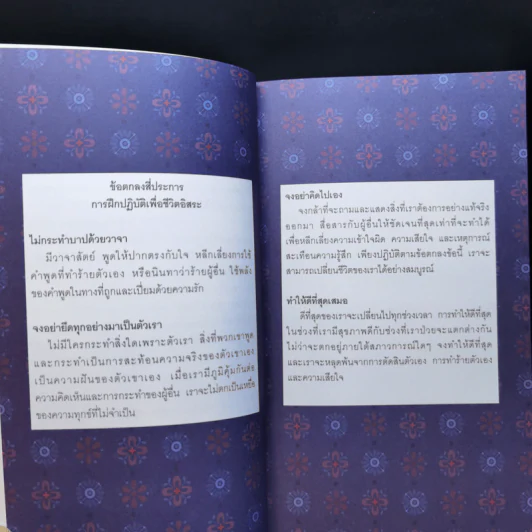 ข้อตกลงสี่ประการ
การฝึกปฏิบัติเพื่อชีวิตอิสระ
ไม่กระทำบาปด้วยวาจา
มีวาจาสัตย์ พูดให้ปากตรงกับใจ หลีกเลี่ยงการใช้
คำพูดที่ทำร้ายตัวเอง หรือนินทาว่าร้ายผู้อื่น ใช้พลัง
ของคำพูดในทางที่ถูกและเปี่ยมด้วยความรัก
จงอย่ายึดทุกอย่างมาเป็นตัวเรา
ไม่มีใครกระทำสิ่งใดเพราะตัวเรา สิ่งที่พวกเขาพูด
และกระทำเป็นการสะท้อนความจริงของตัวเขาเอง
เป็นความฝันของตัวเขาเอง เมื่อเรามีภูมิคุ้มกันต่อ
ความคิดเห็นและการกระทำของผู้อื่น เราจะไม่ตกเป็นเหยื่อ
ของความทุกข์ที่ไม่จำเป็น
จงอย่าคิดไปเอง
จงกล้าที่จะถามและแสดงสิ่งที่เราต้องการอย่างแท้จริง
ออกมา สื่อสารกับผู้อื่นให้ชัดเจนที่สุดเท่าที่จะทำได้
เพื่อหลีกเลี่ยงความเข้าใจผิด ความเสียใจ และเหตุการณ์
สะเทือนความรู้สึก เพียงปฏิบัติตามข้อตกลงข้อนี้ เราจะ
สามารถเปลี่ยนชีวิตของเราได้อย่างสมบูรณ์
ทำให้ดีที่สุดเสมอ
ดีที่สุดของเราจะเปลี่ยนไปทุกช่วงเวลา การทำให้ดีที่สุด
ในช่วงที่เรามีสุขภาพดีกับช่วงที่เราป่วยจะแตกต่างกัน
ไม่ว่าจะตกอยู่ภายใต้สภาวการณ์ใดๆ จงทำให้ดีที่สุด
และเราจะหลุดพ้นจากการตัดสินตัวเอง การทำร้ายตัวเอง
และความเสียใจ